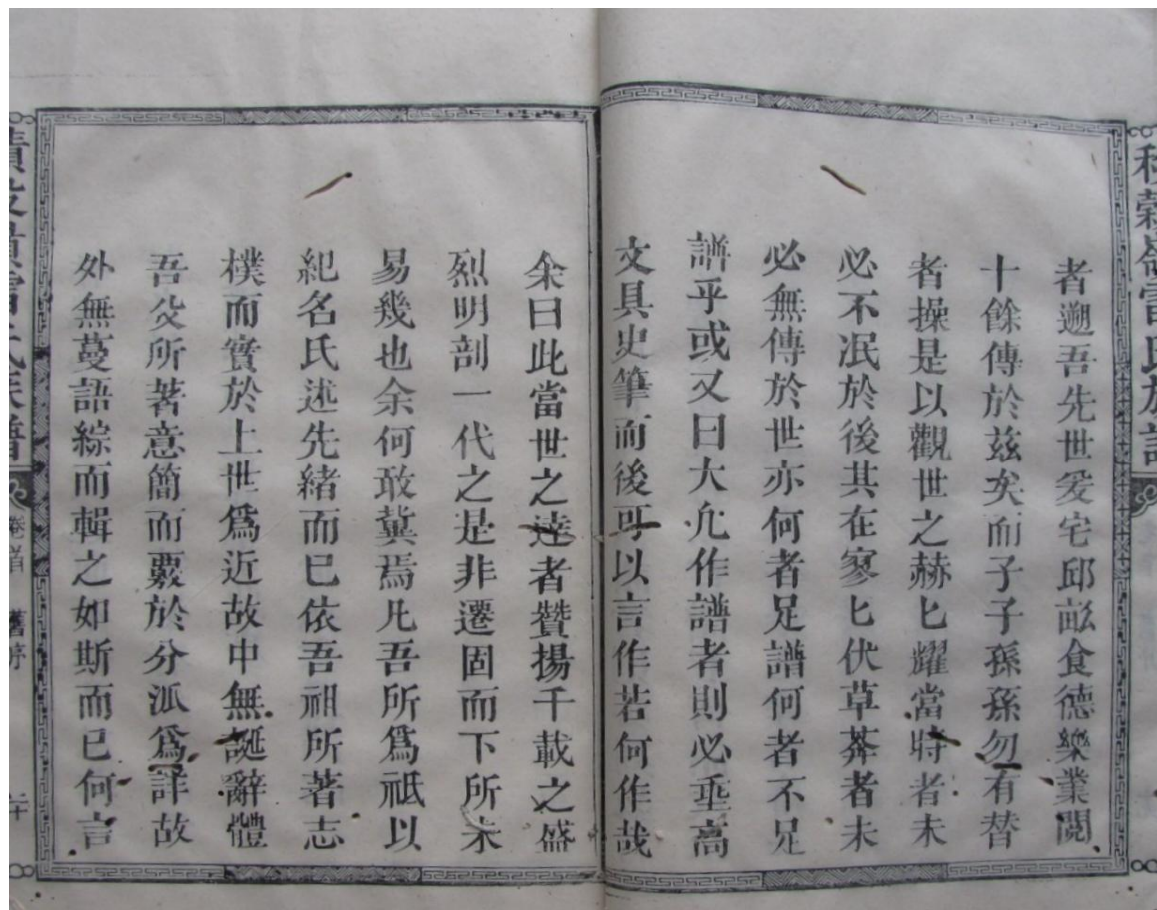 者遡吾先世爰宅邱畝食德樂業閱
十餘傳於茲矣而子子孫孫勿有替
者操是以觀世之赫匕耀當時者未
必不泯於後其在寥匕伏草莽者未
必無傳於世亦何者足譜何者不足
譜乎或又曰大凡作譜者則必垂高
文具史筆而後可以言作若何作哉
余曰此當世之達者贊揚千載之盛
烈明剖一代之是非遷固而下所未
易幾也余何敢冀焉凡吾所爲祗以
紀名氏述先緒而已依吾祖所著志
樸而實於上世爲近故中無誕辭體
吾父所著意簡而覈於分派爲詳故
外無蔓語綜而輯之如斯而已何言
卷首
舊序